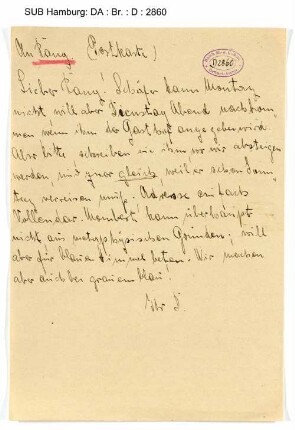 SUB Hamburg: DA : Br. : D : 2860
An Pang. (Postkarte)
D 2860
Lieber Pang! Schäfer kann Montag
nicht, will aber Dienstag Abend nachkom-
men wenn ihm der Gasthof angegeben wird.
Also bitte schreiben sie ihm wo wir absteigen
werden, und zwar gleich weil er schon Sonn-
tag verreisen muss. Adresse einfach
Vallendar. Mombert kann überhaupt
nicht aus metaphysischen Gründen; will
aber für blauen Himmel beten. Wir machen
aber auch bei grauem blau!
Ihr D.